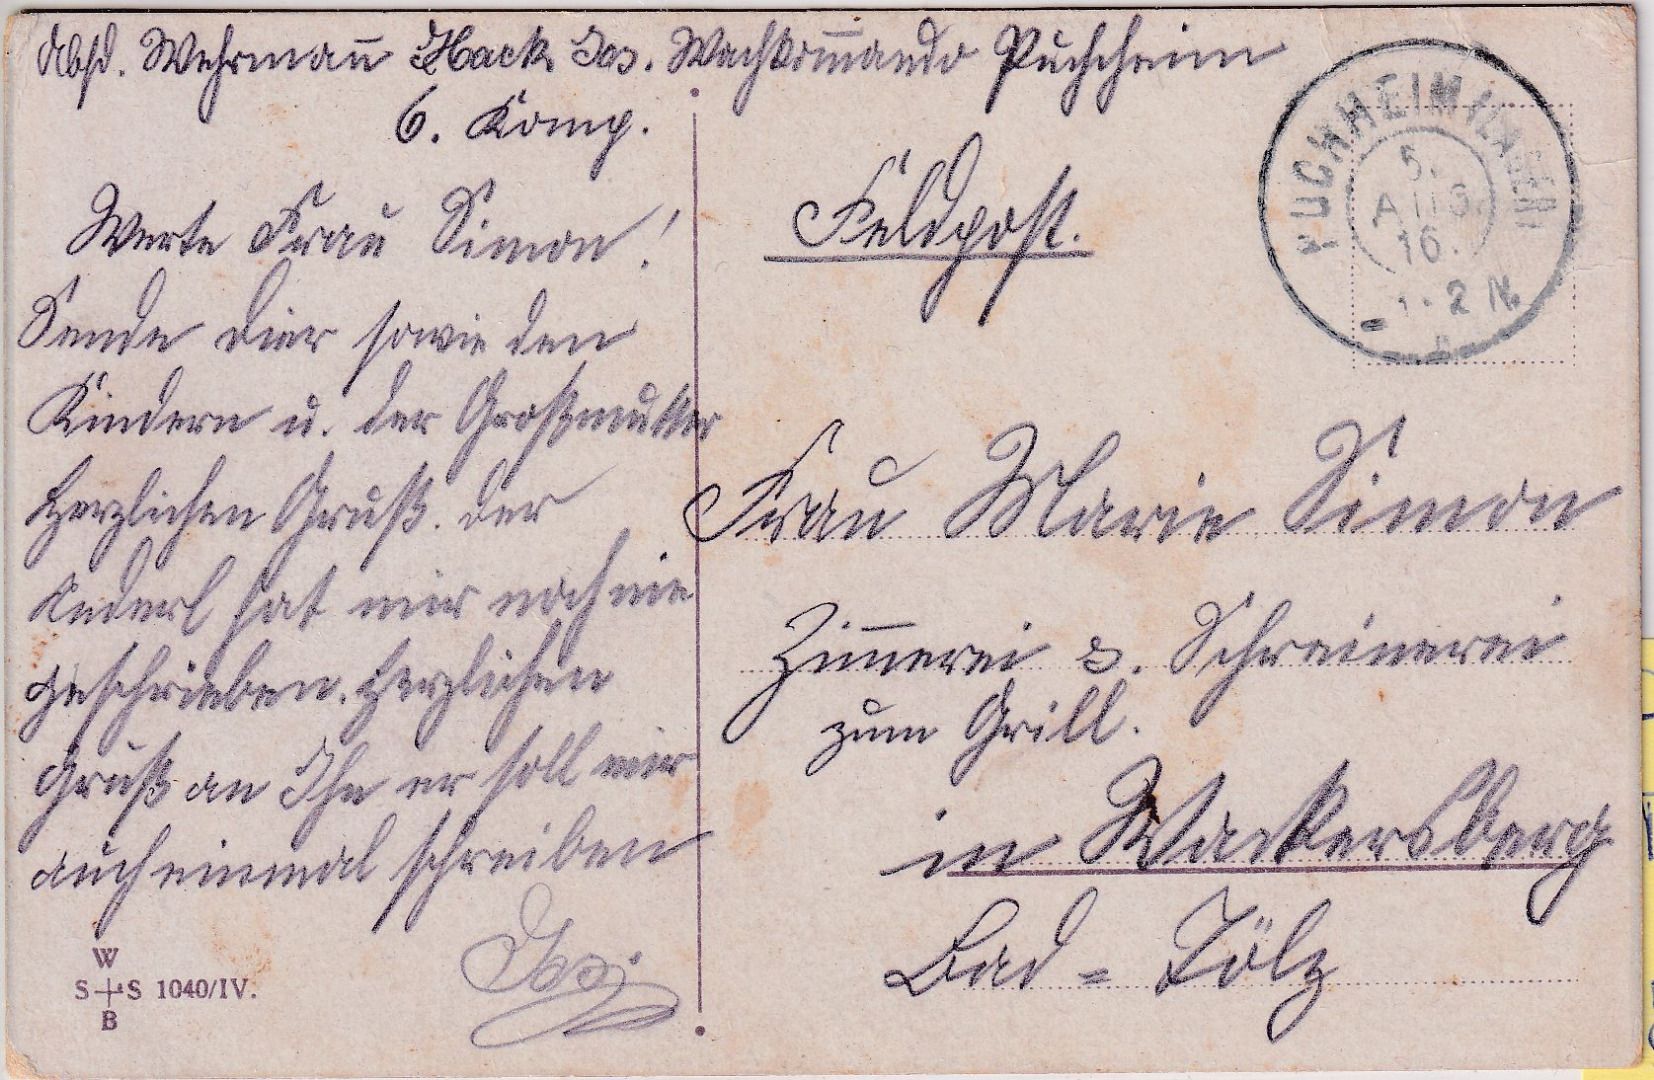 Absd. Wehrmann Hack Jos. Wachkommando Puchheim
6. Komp.
Werte Frau Simon!
Sende Dier sowie den
Kindern u. der Großmutter
herzlichen Gruß. der
hat mir noch nie
geschrieben. herzlichen
Gruß an Ihn er soll mir
auch einmal schreiben
W
S S 1040/IV.
B
Feldpost.
PUCHHEIM
5.
AUG.
16.
2 N.
Frau Marie Simon
Zimmerei Schreinerei
zum Grill.
in Wackersberg
Bad=Tölz